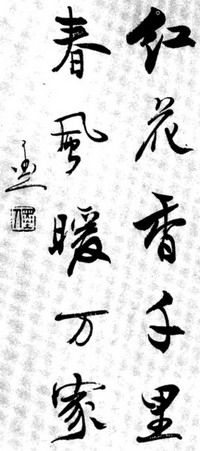 红花香千里
春风暖万家